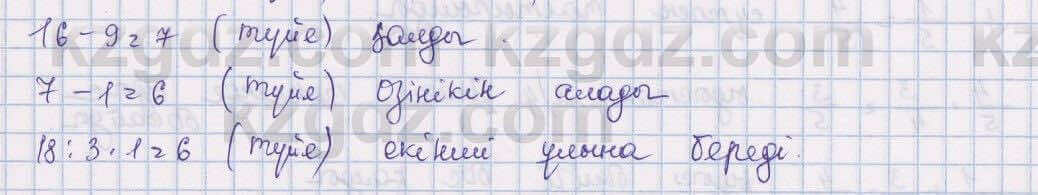 16 - 9 = 7 (түйе) қалды.
7 - 1 = 6 (түйе) өзінікін алады
18 : 3 · 1 = 6 (түйе) екінші ұлына береді.
kzgdz.com kzgdz.com
kzgdz.com